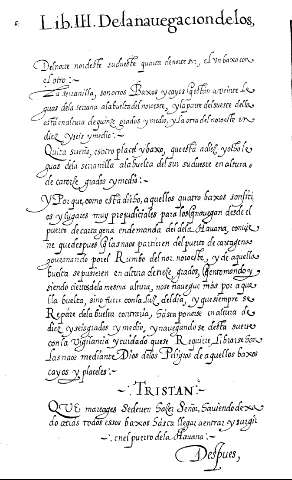 Lib. III. De la navegacion de los,
del norte nordeste sudueste quarta de norte sur, el un baxo con
el otro:
La serranilla, son otros Baxos y cayos
guas de la serrana a la buelta del norueste, y la parte del sueste
esta en altura de quinze grados y medio, y la otra del norueste en
diez y seis y medio:
Quita sueño, es otro placel y baxo, que esta a diez y ocho le
guas de la serranilla a la buelta del sur sudueste en altura
de catorze grados y medio:
Y Porque, como esta dicho, aquellos quatro baxos
y lugares muy prejudiciales para los que navegan desde el
puerto de cartagena en demanda del de la Havana, convie
ne que despues que las naos partieren del puerto de cartagena
governando por el Rumbo del norueste, y de aquella
buelta se pusieren en altura de nueve grados,
siendo ciertos de la mesma altura, no se navegue mas por aque
lla buelta, sino fuere con la luz del dia, y que siempre se
Repare de la buelta contraria, hasta ponerse en altura de
diez y seis grados y medio, y navegando de esta suerte
con la vigilancia y cuidado que se Requiere, Librarse han
las naos mediante Dios de los Peligros de aquellos baxos
cayos y placeles:
TRISTAN
QUE mareages se deven hazer Señor, haviendo dexa
do atras todos essos baxos hasta llegar a entrar y surgir
en el puerto de la Havana:
Despues,